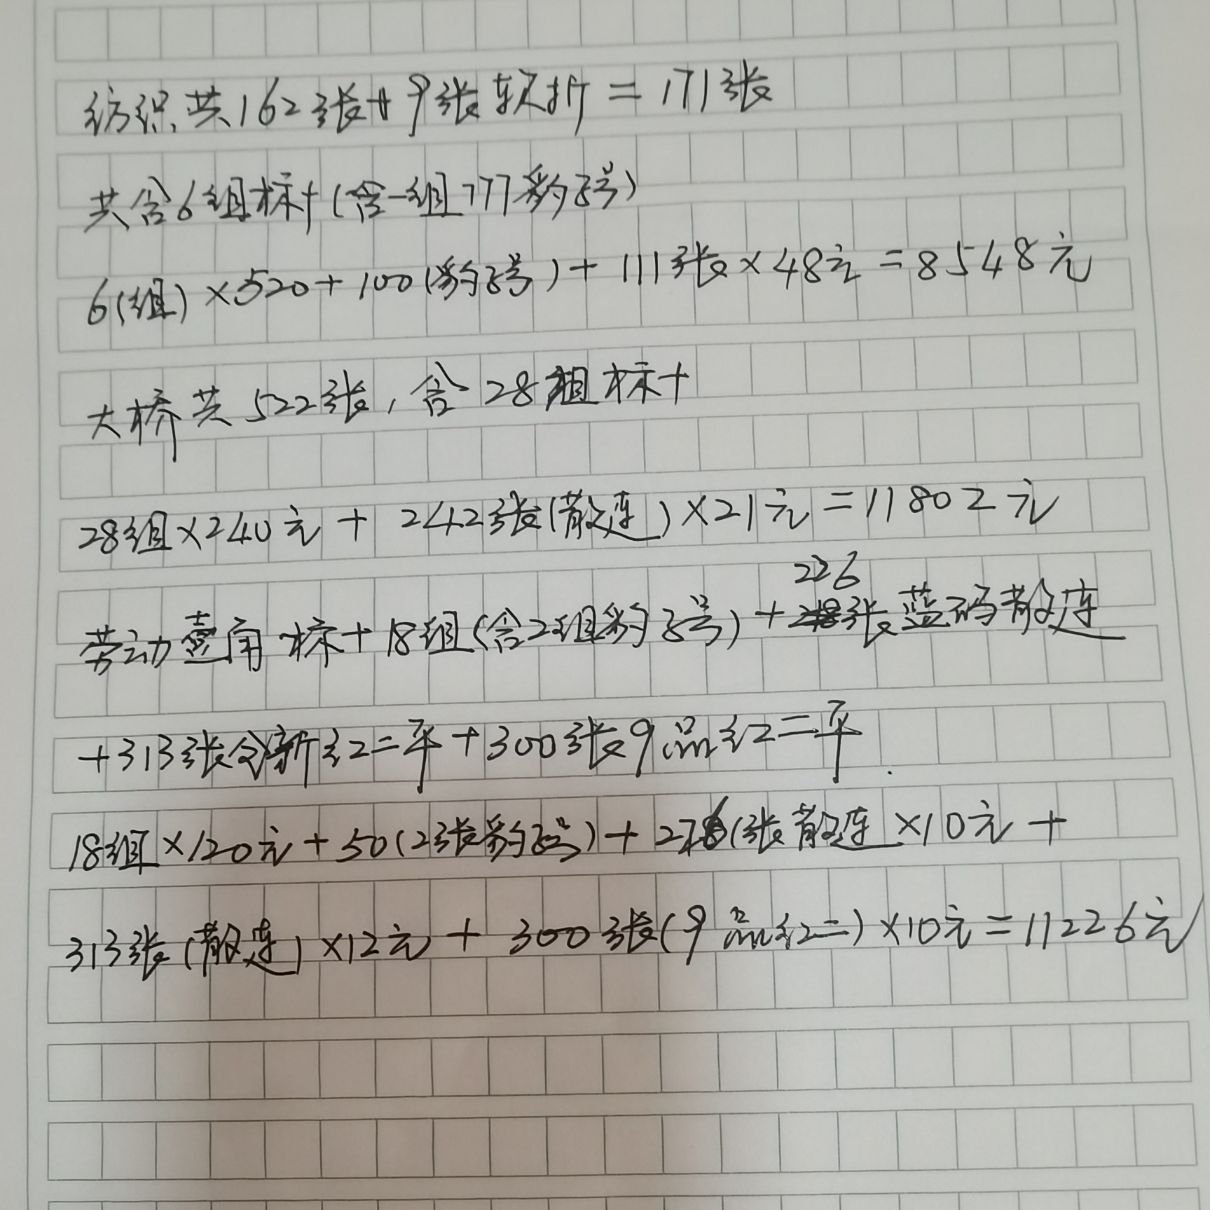 纺织共162张+9张软折=171张
共含6组标十(含一组777豹子号)
6(组)×520+100(豹子号)+111张×48元=8548元
大桥共522张,含28组标十
28组×240元+242张(散连)×21元=11802元
226
劳动壹角标十18组(含2组豹子号)+张蓝码散连
+313张全新红二平+300张9品红二平.
18组×120元+50(2张豹子号)+226(张散连×10元+
313张(散连)×12元+300张(9品红二)×10元=11226元